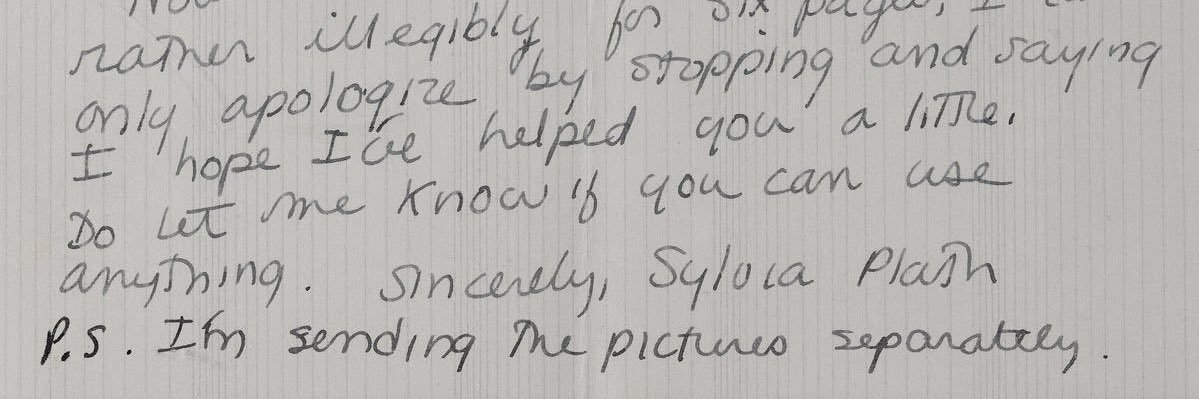 rather illegibly for six pages, I
only apologize by stopping and saying
I hope I've helped you a little.
Do let me know if you can use
anything. Sincerely, Sylvia Plath
P.S. I'm sending the pictures separately.